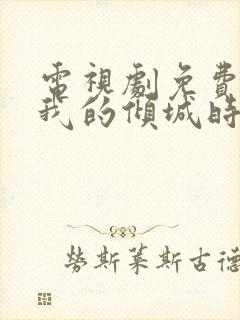 電視劇免費
我的傾城時
勞斯萊斯古德